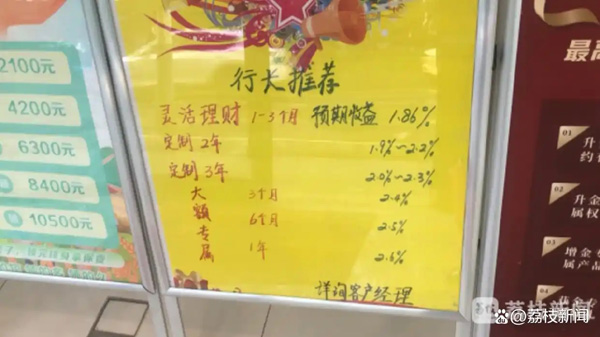 2100元
4200元
6300元
8400元
10500元
行长推荐
灵活理财 1-3个月 预期收益 1.86%
定制2年 1.9%~2.2%
定制3年 2.0%~2.3%
大额专属 3个月 2.4%
6个月 2.5%
1年 2.6%
详询客户经理
最高
01
升
约
02
升金
属权
03
增金
属产品
04
荔枝新闻
荔枝新闻